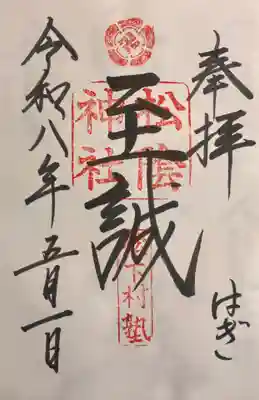 奉拝
はぎ
至誠
松陰神社
松下村塾
令和八年五月一日